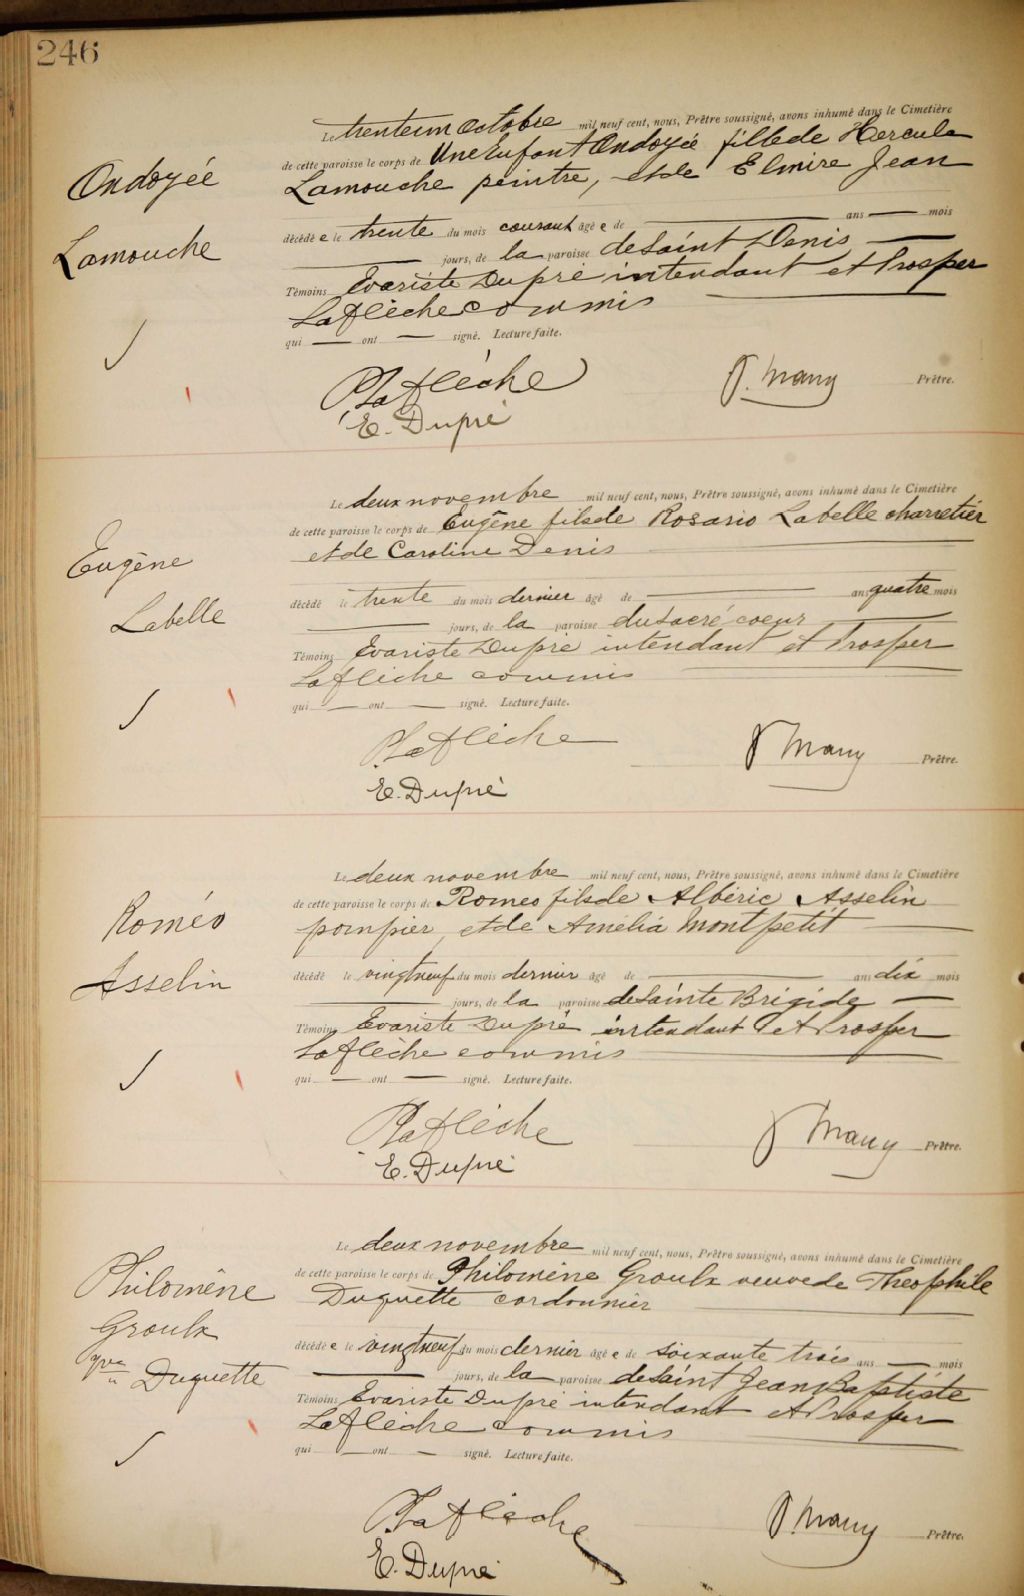 246
Ondoyée
Lamouche
Le trente un octobre mil neuf cent, nous, Prêtre soussigné, avons inhumé dans le Cimetière
de cette paroisse le corps de Une Enfant Ondoyée fille de Hercule
Lamouche peintre, et de Elmire Jean
décédé e le trente du mois courant âgé e de ans mois
jours, de la paroisse de Saint Denis
Témoins Evariste Dupré intendant et Prosper
Laflèche commis
qui ont signé. Lecture faite.
P. Laflèche
E. Dupré
Prêtre.
Eugène
Labelle
Le deux novembre mil neuf cent, nous, Prêtre soussigné, avons inhumé dans le Cimetière
de cette paroisse le corps de Eugène fils de Rosario Labelle charretier
et de Caroline Denis
décédé le trente du mois dernier âgé de ans quatre mois
jours, de la paroisse du Sacré coeur
Témoins Evariste Dupré intendant et Prosper
Laflèche commis
qui ont signé. Lecture faite.
P. Laflèche
E. Dupré
Prêtre.
Roméo
Asselin
Le deux novembre mil neuf cent, nous, Prêtre soussigné, avons inhumé dans le Cimetière
de cette paroisse le corps de Romeo fils de Albéric Asselin
pompier, et de Amélia Montpetit
décédé le vingt neuf du mois dernier âgé de ans dix mois
jours, de la paroisse de Sainte Brigide
Témoins Evariste Dupré intendant et Prosper
Laflèche commis
qui ont signé. Lecture faite.
P. Laflèche
E. Dupré
Prêtre.
Philomène
Groulx
Duquette
Le deux novembre mil neuf cent, nous, Prêtre soussigné, avons inhumé dans le Cimetière
de cette paroisse le corps de Philomène Groulx veuve de Théophile
Duquette cordonnier
décédé e le vingt neuf du mois dernier âgé e de soixante trois ans mois
jours, de la paroisse de Saint Jean Baptiste
Témoins Evariste Dupré intendant et Prosper
Laflèche commis
qui ont signé. Lecture faite.
P. Laflèche
E. Dupré
Prêtre.